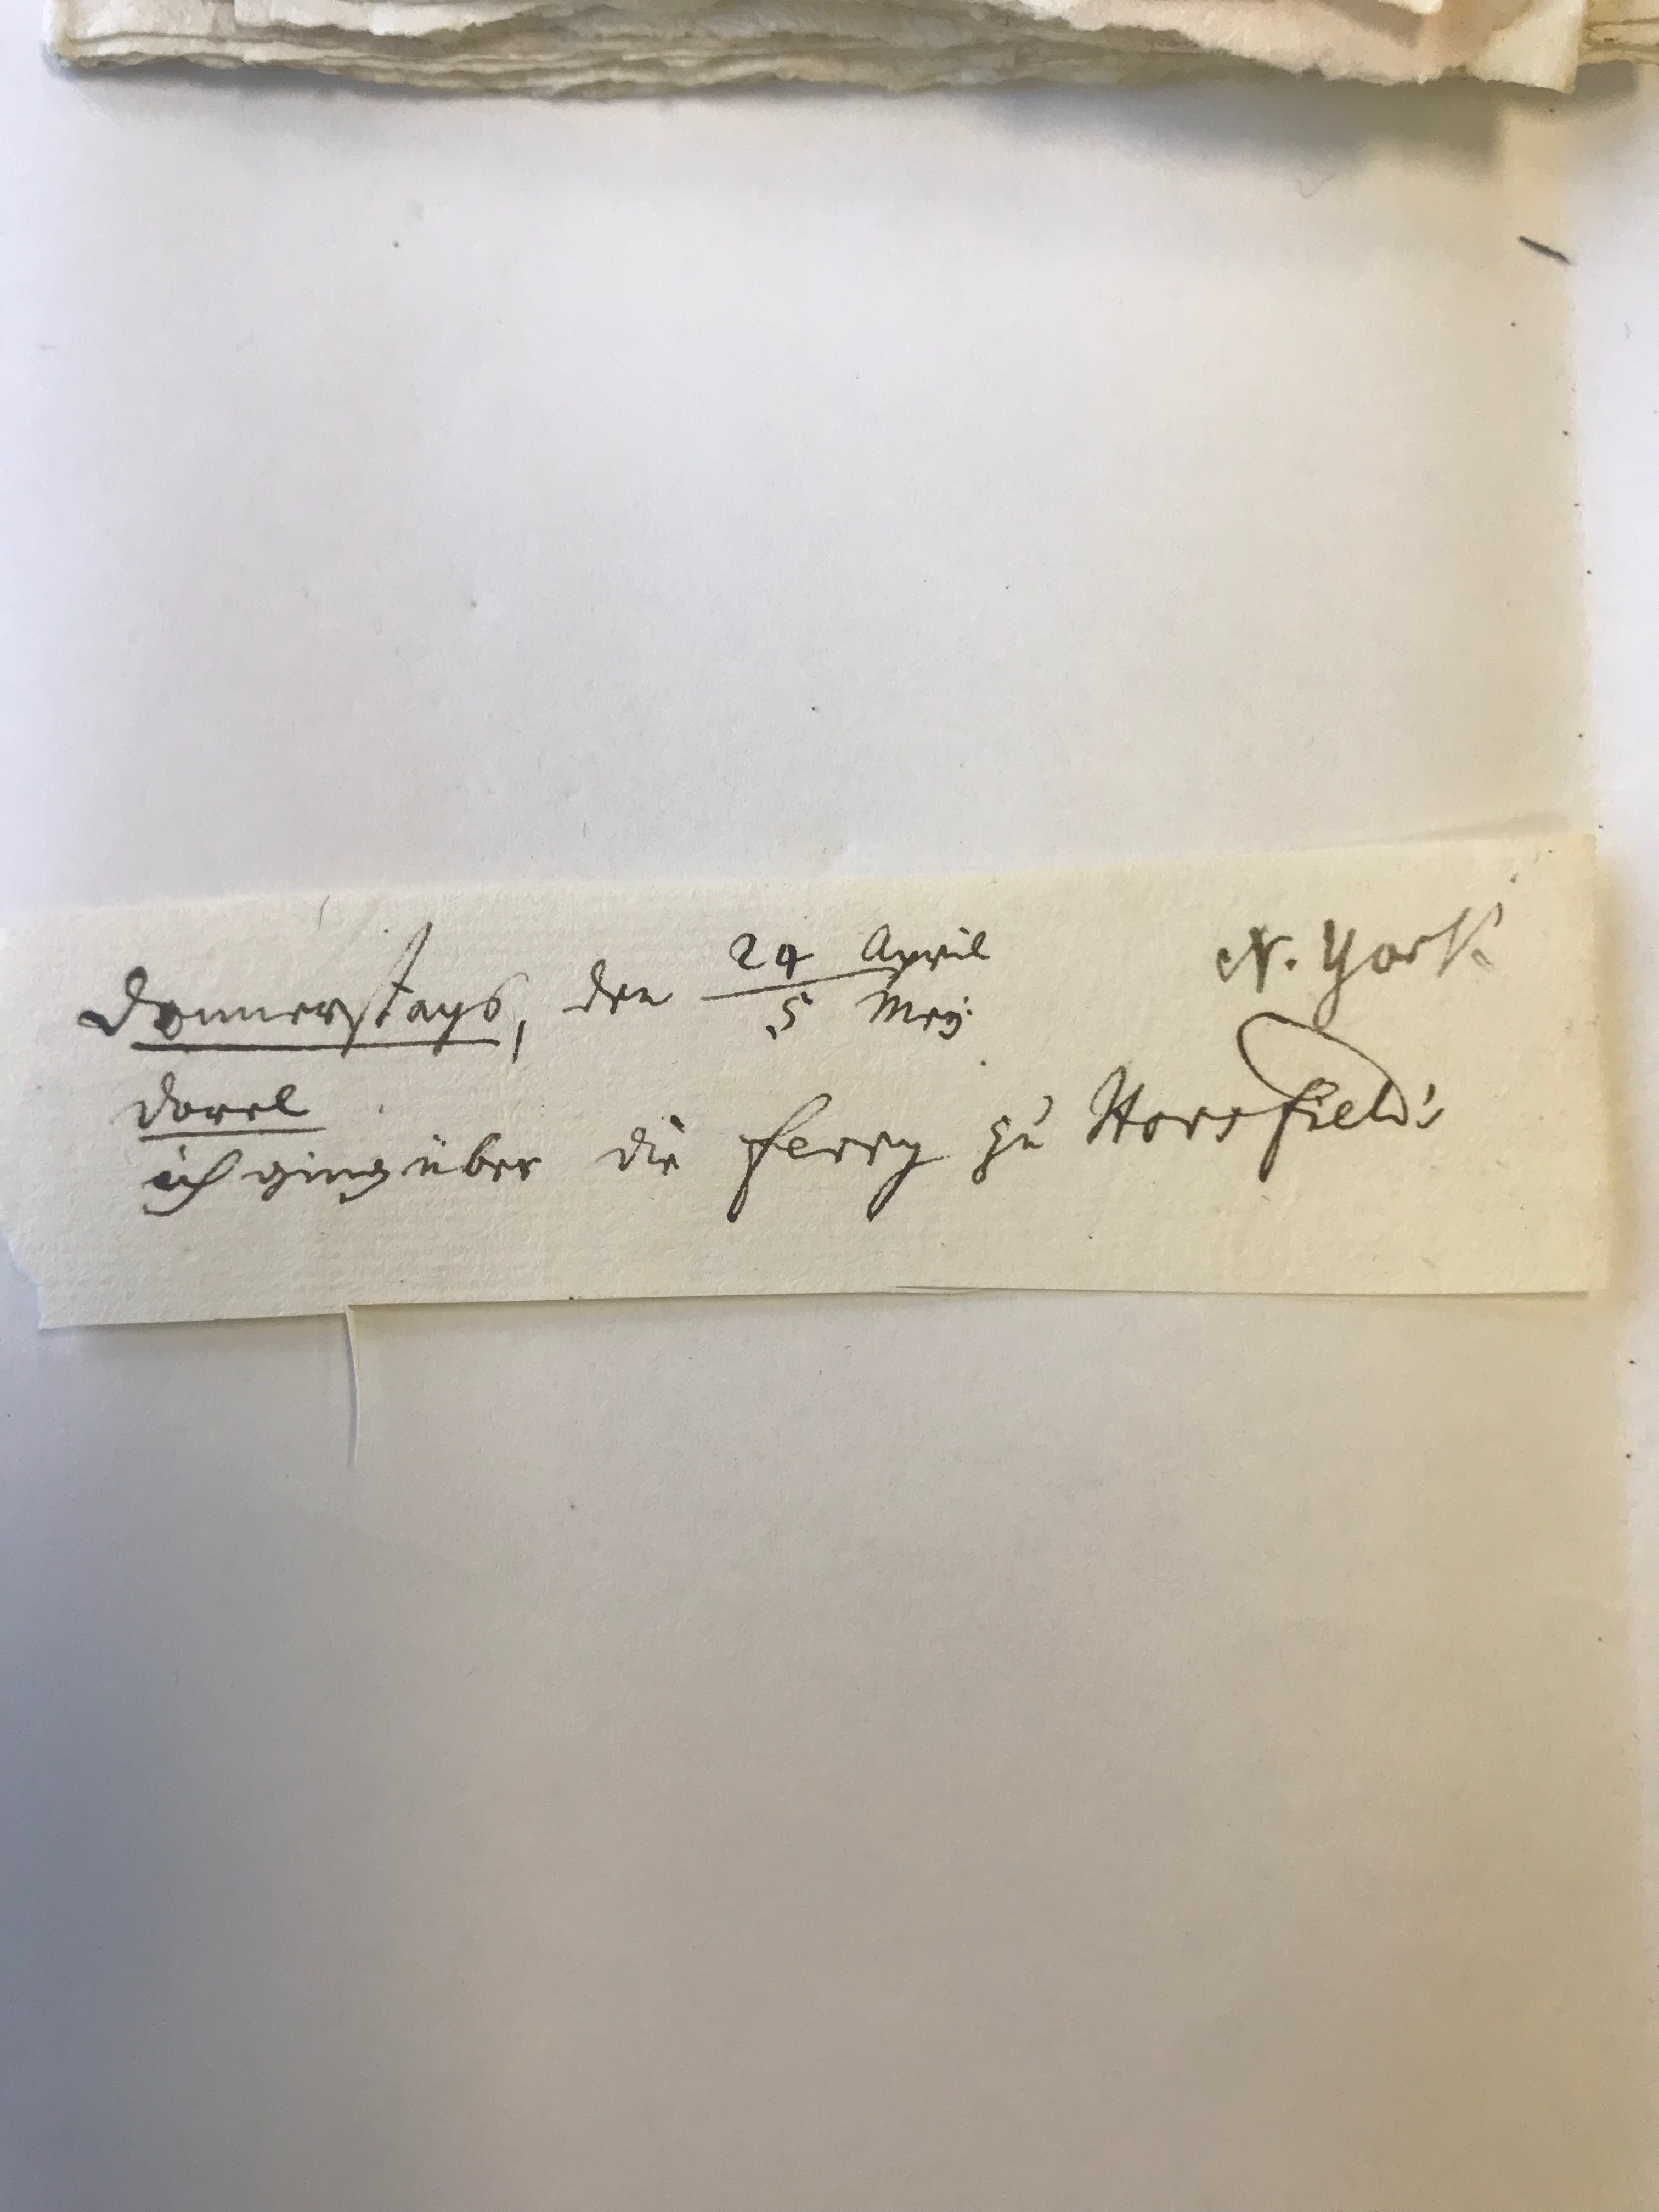 Donnerstags, den 24 April / 5 Mey N. York
Dorel
ich ging über die Ferry zu Horsfield's